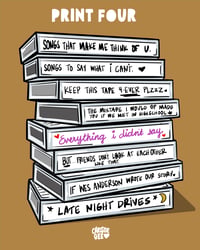 PRINT FOUR
SONGS THAT MAKE ME THINK OF U.
SONGS TO SAY WHAT I CAN'T.
KEEP THIS TAPE 4-EVER PLZZZ.
THE MIXTAPE I WOULD OF MADE
YOU IF WE MET IN HIGHSCHOOL
Everything i didnt say
BUT FRIENDS DONT LOOK AT EACH OTHER
LIKE THAT
IF WES ANDERSON WROTE OUR STORY.
* LATE NIGHT DRIVES *